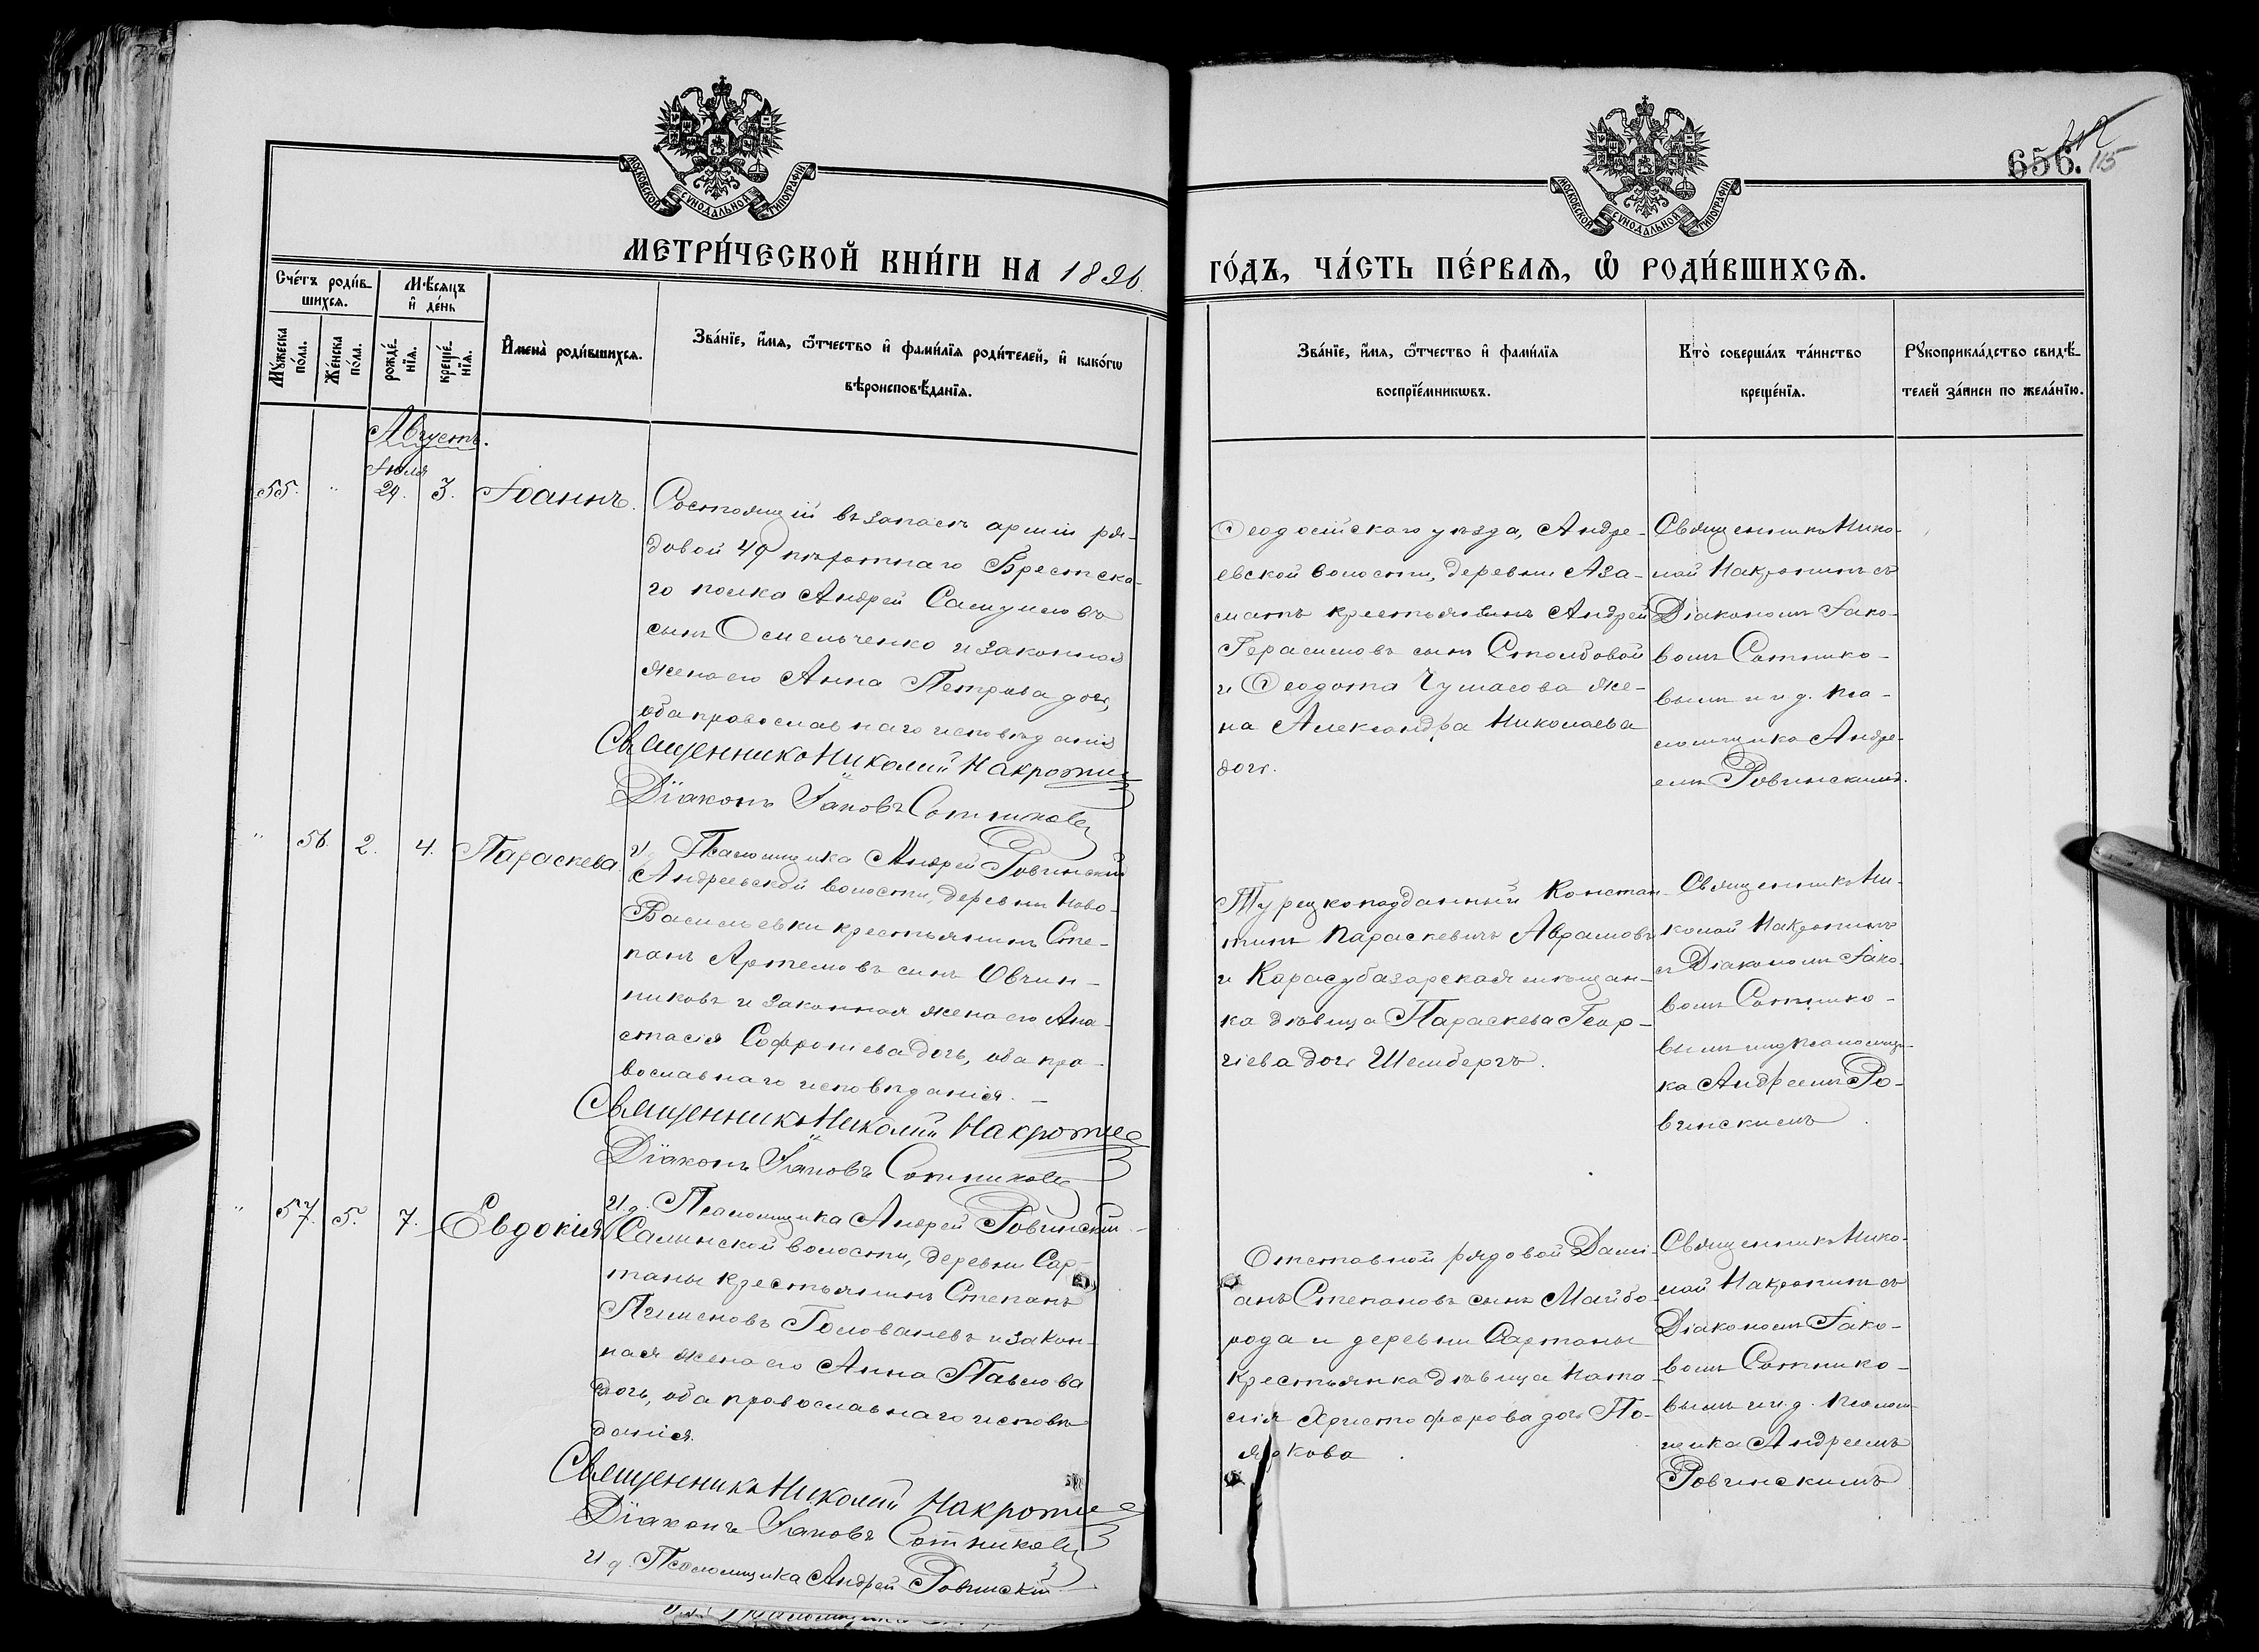 МОСКОВСКОЙ СѴНОДАЛЬНОЙ ТИПОГРАФІИ
МЕТРИ́ЧЕСКОЙ КНИ́ГИ НА 1896.
Сче́тъ роди́в-
шихсѧ.
Мѣ́сѧцъ
и҆ де́нь
Мꙋ́жеска
по́ла.
Же́нска
по́ла.
рожде́-
нїѧ.
креще́-
нїѧ.
И҆мена̀ роди́вшихсѧ.
Зва́нїе, и҆́мѧ, ѻ҆́тчество и҆ фами́лїѧ роди́телей, и҆ како́гѡ
вѣроисповѣ́данїѧ.
Августъ.
Іюля
55. " 24. 3. Іоаннъ.
Состоящій въ запасѣ арміи ря-
довой 49 пѣхотнаго Брестска-
го полка Андрей Самуиловъ
сынъ Омельченко и законная
жена его Анна Петрова дочь,
оба православнаго исповѣданія
Священникъ Николай Накропинъ
Діаконъ Іаковъ Сотниковъ
И д. Псаломщика Андрей Ровинскій
" 56. 2. 4. Параскева.
Андреевской волости, деревни Ново-
Васильевки крестьянинъ Сте-
панъ Артемовъ сынъ Овчин-
никовъ и законная жена его Ана-
стасія Софроніева дочь, оба пра-
вославнаго исповѣданія. –
Священникъ Николай Накропинъ
Діаконъ Іаковъ Сотниковъ
И д. Псаломщика Андрей Ровинскій
" 57. 5. 7. Евдокія
Салынской волости, деревни Сар-
таны крестьянинъ Степанъ
Пименовъ Голованевъ и закон-
ная жена его Анна Павлова
дочь, оба православнаго исповѣ-
данія.
Священникъ Николай Накропинъ
Діаконъ Іаковъ Сотниковъ
И д. Псаломщика Андрей Ровинскій
МОСКОВСКОЙ СѴНОДАЛЬНОЙ ТИПОГРАФІИ
656. 115
ГО́ДЪ, ЧА́СТЬ ПЕ́РВАѦ, Ѡ҆ РОДИ́ВШИХСѦ.
Зва́нїе, и҆́мѧ, ѻ҆́тчество и҆ фами́лїѧ
воспрїе́мникѡвъ.
Кто̀ соверша́лъ та́инство
креще́нїѧ.
Рꙋкоприкла́дство свидѣ́-
телей за́писи по жела́нїю.
Ѳеодосійскаго уѣзда, Андре-
евской волости, деревни Аза-
матъ крестьянинъ Андрей
Герасимовъ сынъ Столбовой
и Ѳеодота Чумасова же-
на Александра Николаева
дочь.
Священникъ Нико-
лай Накропинъ съ
Діакономъ Іако-
вомъ Сотнико-
вымъ и и д. пса-
ломщика Андре-
емъ Ровинскимъ.
Турецкоподданный Констан-
тинъ Параскевичъ Аврамовъ
и Карасубазарская мѣщан-
ка дѣвица Параскева Геор-
гіева дочь Шембергъ.
Священникъ Ни-
колай Накропинъ
съ Діакономъ Іако-
вомъ Сотнико-
вымъ и и д псаломщи-
ка Андреемъ Ро-
винскимъ
Отставной рядовой Дамі-
анъ Степановъ сынъ Майбо-
рода и деревни Сартаны
крестьянка дѣвица Ната-
лія Христофорова дочь По-
яркова.
Священникъ Нико-
лай Накропинъ съ
Діакономъ Іако-
вомъ Сотнико-
вымъ и и д. псалом-
щика Андреемъ
Ровинскимъ